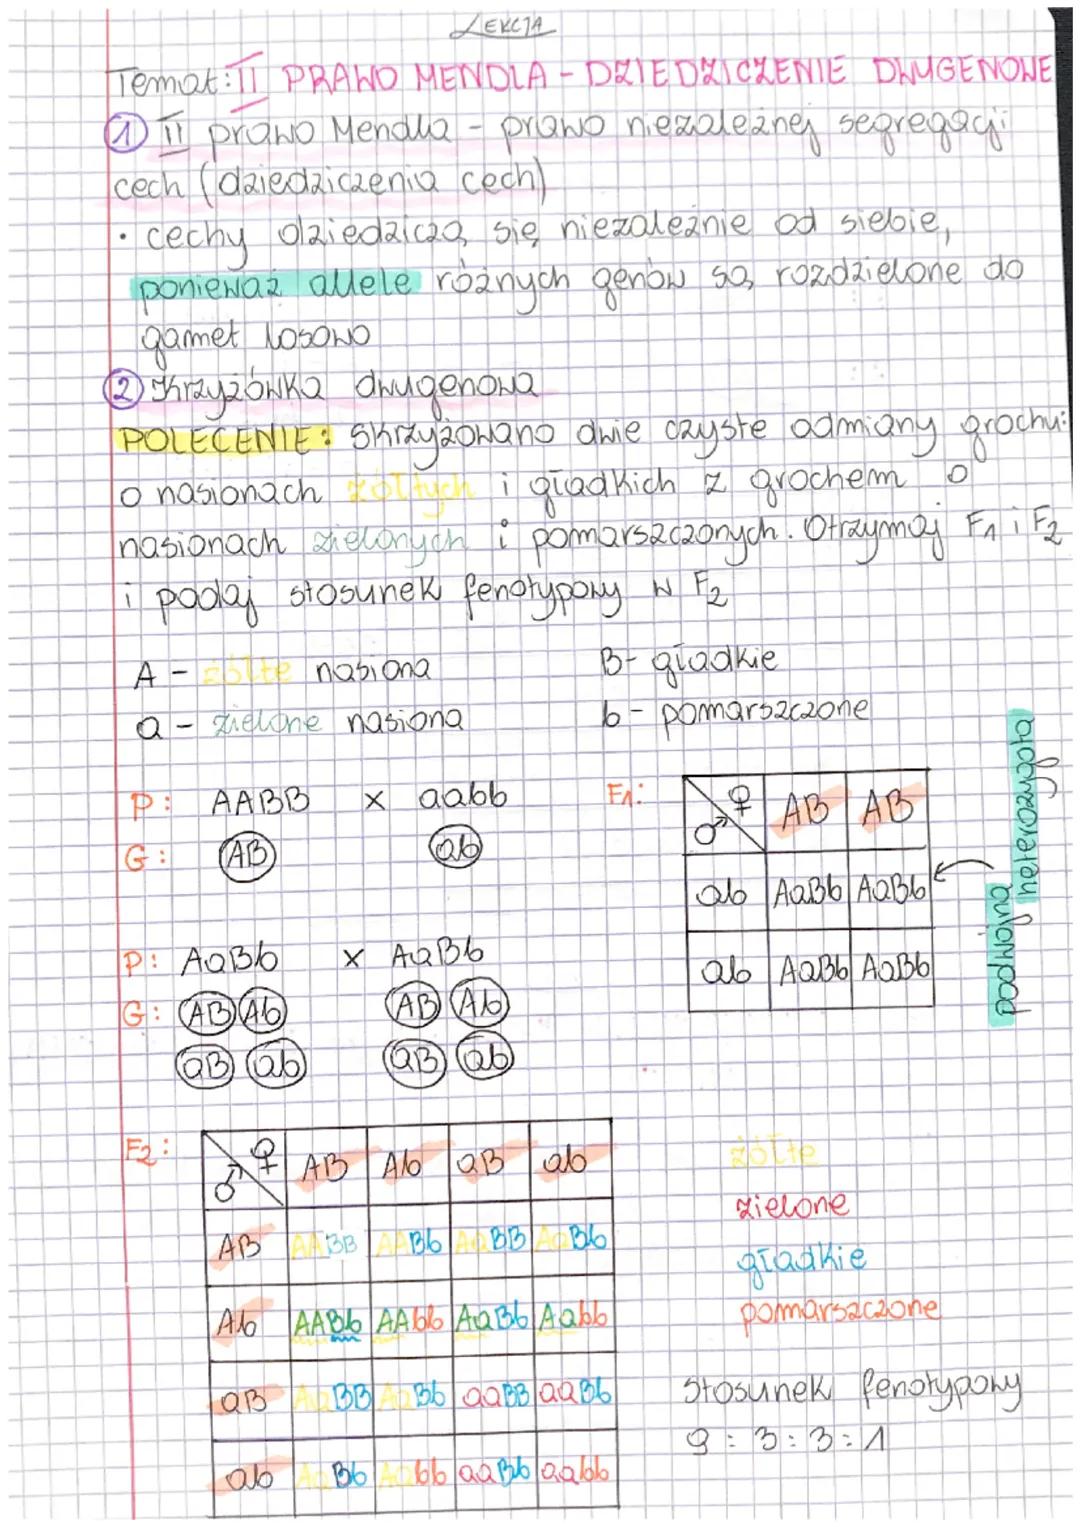 LEKCJA
Temat: II PRAWO MENDLA - DZIEDZICZENIE DWUGENOWE
1 II prawo Mendla - prawo niezależnej segregacji
cech (dziedziczenia cech)
• cechy dziedziczą się niezależnie od siebie,
ponieważ allele różnych genów są rozdzielone do
gamet losowo
2 Krzyżówka dwugenowa
POLECENIE: Skrzyżowano dwie czyste odmiany grochu:
o nasionach żółtych i gładkich z grochem o
nasionach zielonych i pomarszczonych. Otrzymaj F1 i F2
i podaj stosunek fenotypowy w F2
A - żółte nasiona B - gładkie
a - zielone nasiona b - pomarszczone
P: AABB x aabb
G: AB ab
F1:
♂ ♀ AB AB
ab AaBb AaBb
ab AaBb AaBb
podwójna
heterozygota
P: AaBb x AaBb
G: AB Ab AB Ab
aB ab aB ab
F2:
♂ ♀ AB Ab aB ab
AB AABB AABb AaBB AaBb
Ab AABb AAbb AaBb Aabb
aB AaBB AaBb aaBB aaBb
ab AaBb Aabb aaBb aabb
żółte
zielone
gładkie
pomarszczone
stosunek fenotypowy
9 : 3 : 3 : 1